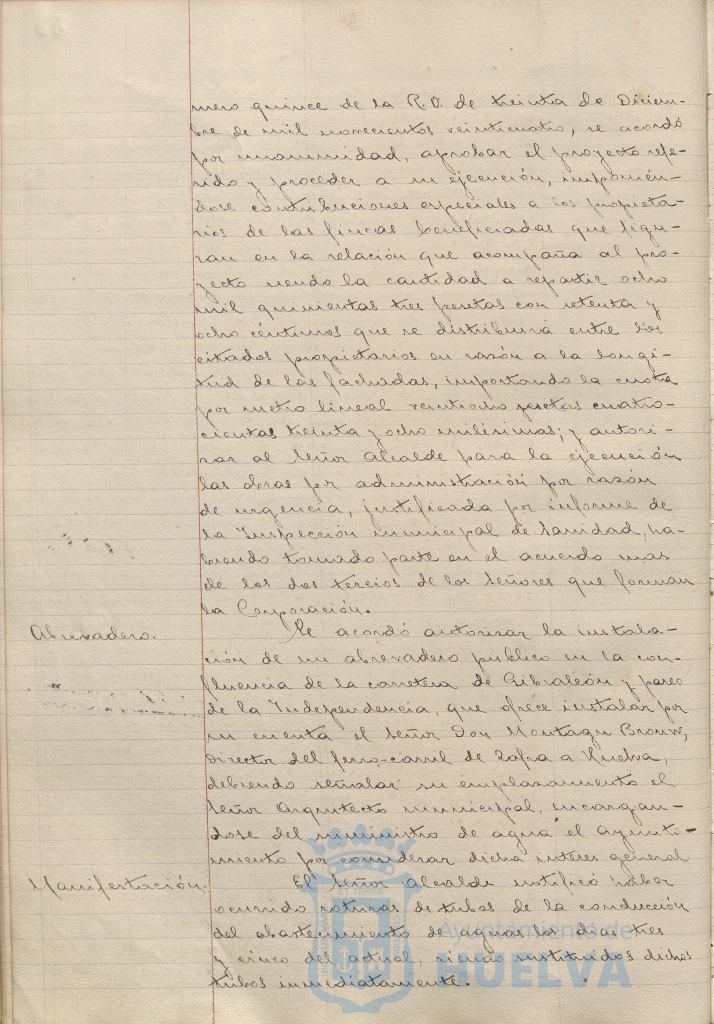 mero quince de la R.O. de treinta de Diciem-
bre de mil novecientos veinticuatro, se acordó
por unanimidad, aprobar el proyecto refe-
rido y proceder a su ejecución, imponién-
dose contribuciones especiales a los propieta-
rios de las fincas beneficiadas que figu-
ran en la relación que acompaña al pro-
yecto siendo la cantidad a repartir ocho
mil quinientas tres pesetas con setenta y
ocho céntimos que se distribuirá entre los
citados propietarios en razón a la longi-
tud de las fachadas, importando la cuota
por metro lineal veintiocho pesetas cuatro-
cientas treinta y ocho milésimas; y autori-
zar al Señor Alcalde para la ejecución
las obras por administración por razón
de urgencia, justificada por informe de
la Inspección municipal de Sanidad, ha-
biendo tomado parte en el acuerdo mas
de los dos tercios de los Señores que forman
la Corporación.
Abrevadero. Se acordó autorizar la instala-
ción de un abrevadero publico en la con-
fluencia de la carretera de Gibraleón y paseo
de la Independencia, que ofrece instalar por
su cuenta el Señor Don Montagu Brown,
Director del ferro-carril de Zafra a Huelva,
debiendo señalar su emplazamiento el
Señor Arquitecto municipal, encargan-
dose del suministro de agua el Ayunta-
miento por considerar dicha interes general
Manifestación. El Señor Alcalde notificó haber
ocurrido roturas de tubos de la conducción
del abastecimiento de aguas los dias tres
y cinco del actual, siendo sustituidos dichos
tubos inmediatamente.
Ayuntamiento de
HUELVA